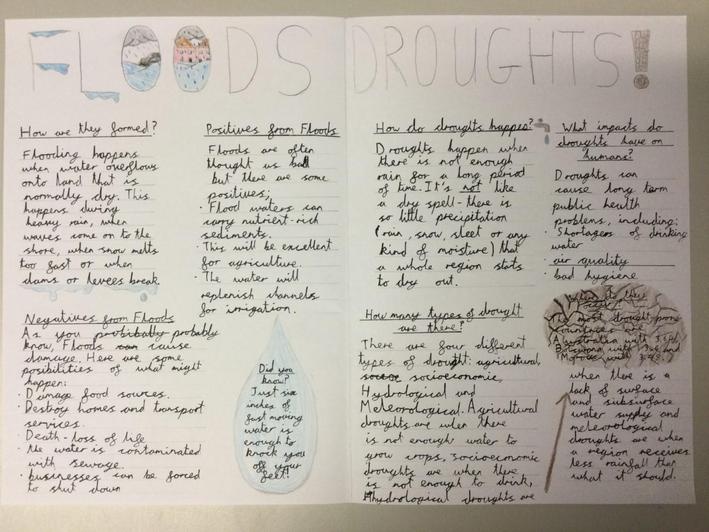 FLOODS
How are they formed?
Flooding happens
when water overflows
onto land that is
normally dry. This
happens during
heavy rain, when
waves come on to the
shore, when snow melts
too fast or when
dams or levees break.
Negatives from Floods
As you probably
know, Floods cause
damage. Here are some
posibilities of what might
happen:
· Damage food sources.
· Destroy homes and transport
services.
· Death - loss of life
· the water is contaminated
with sewage.
· businesses can be forced
to shut down
Positives from Floods
Floods are often
thought as bad
but there are some
positives;
· Flood waters can
carry nutrient-rich
sediments.
· This will be excellent
for agriculture.
· The water will
replenish channels
for irrigation.
Did you
know?
Just six
inches of
fast moving
water is
enough to
knock you
off your
feet!
DROUGHTS!
How do droughts happen?
Droughts happen when
there is not enough
rain for a long period
of time. It's not like
a dry spell - there is
so little precipitation
(rain, snow, sleet or any
kind of moisture) that
a whole region starts
to dry out.
How many types of drought
are there?
There are four different
types of drought: agricultural,
socioeconomic,
Hydrological and
Meteorological. Agricultural
droughts are when there
is not enough water to
grow crops, socioeconomic
droughts are when there
is not enough to drink,
hydrological droughts are
What impacts do
droughts have on
humans?
Droughts can
cause long term
public health
problems, including;
· Shortages of drinking
water
· air quality
· bad hygiene
most drought prone
countries are
when there is a
lack of surface
and subsurface
water supply and
meteorological
droughts are when
a region receives
less rainfall than
what it should.